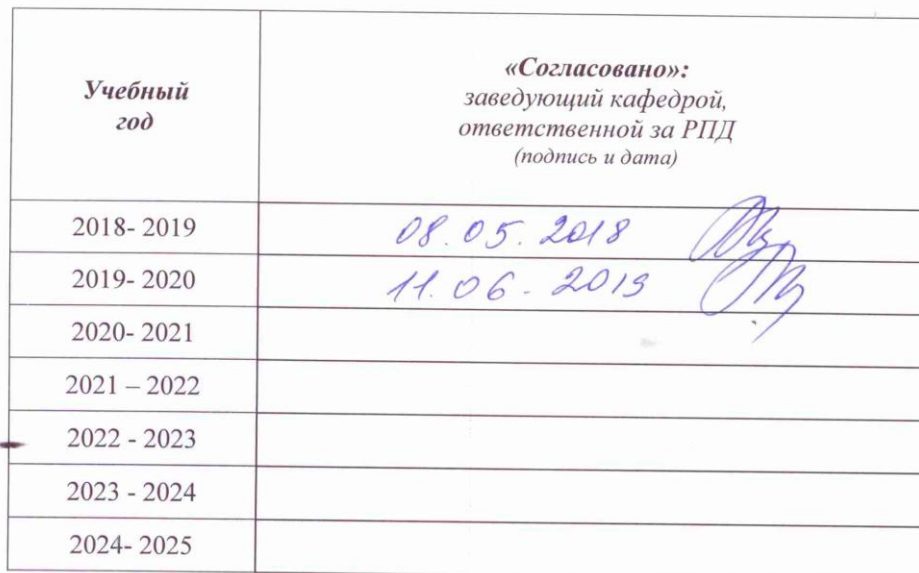 Учебный
год
«Согласовано»:
заведующий кафедрой,
ответственной за РПД
(подпись и дата)
2018- 2019 08.05.2018
2019- 2020 11.06-2019
2020- 2021
2021 – 2022
2022 - 2023
2023 - 2024
2024- 2025